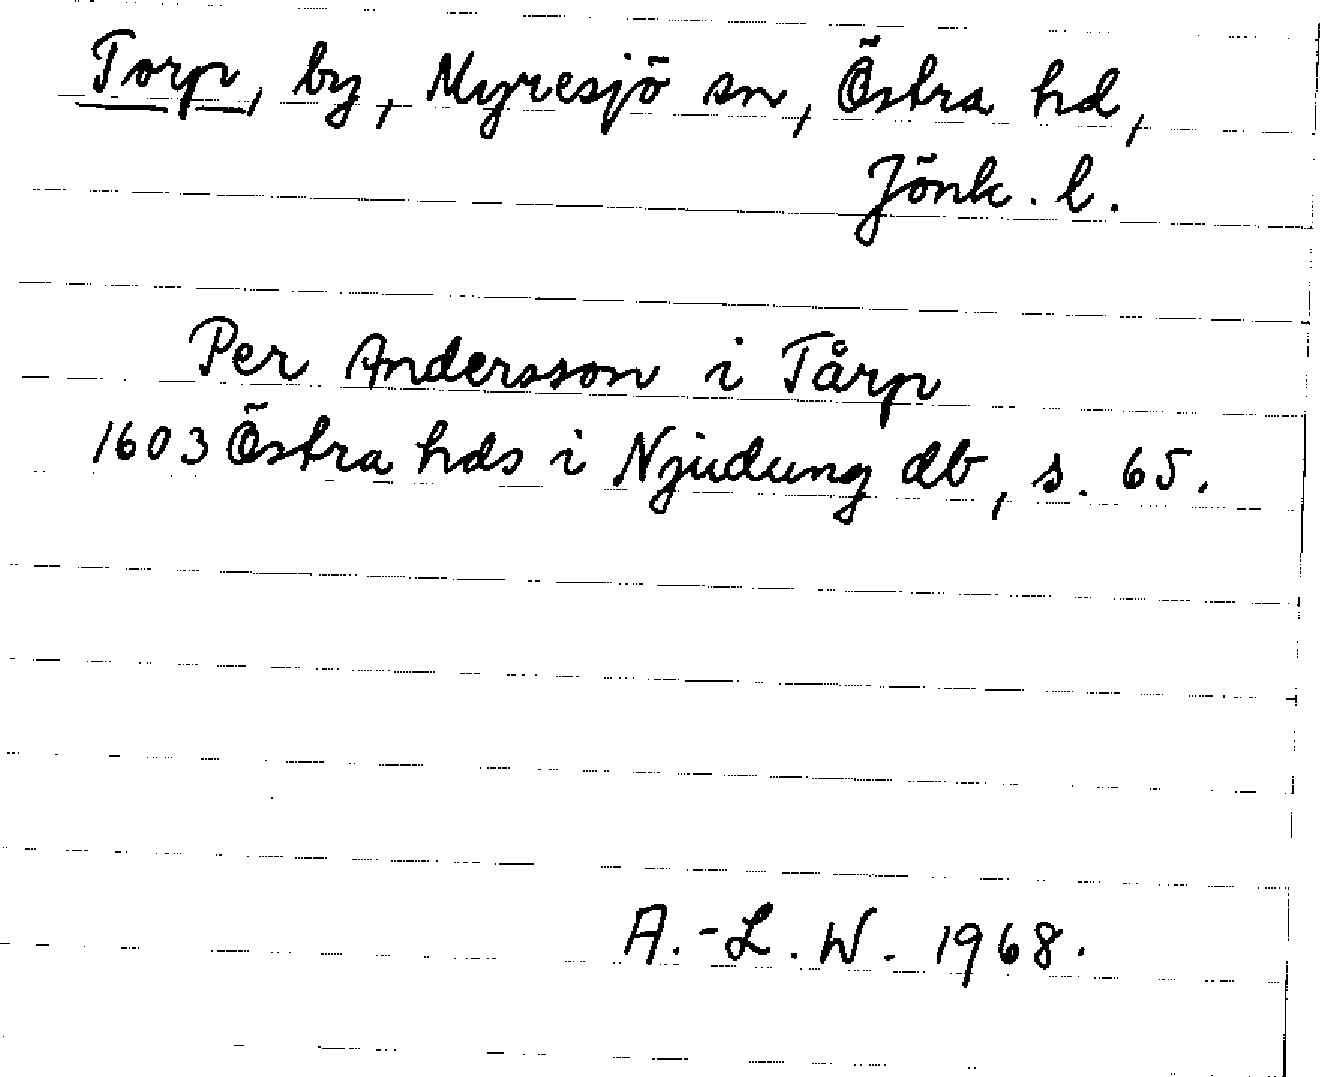 Torp, by, Myresjö sn, Östra hd,
Jönk. l.
Per Andersson i Tårp
1603 Östra hds i Njudung db, s. 65.
A.-L. W. 1968.